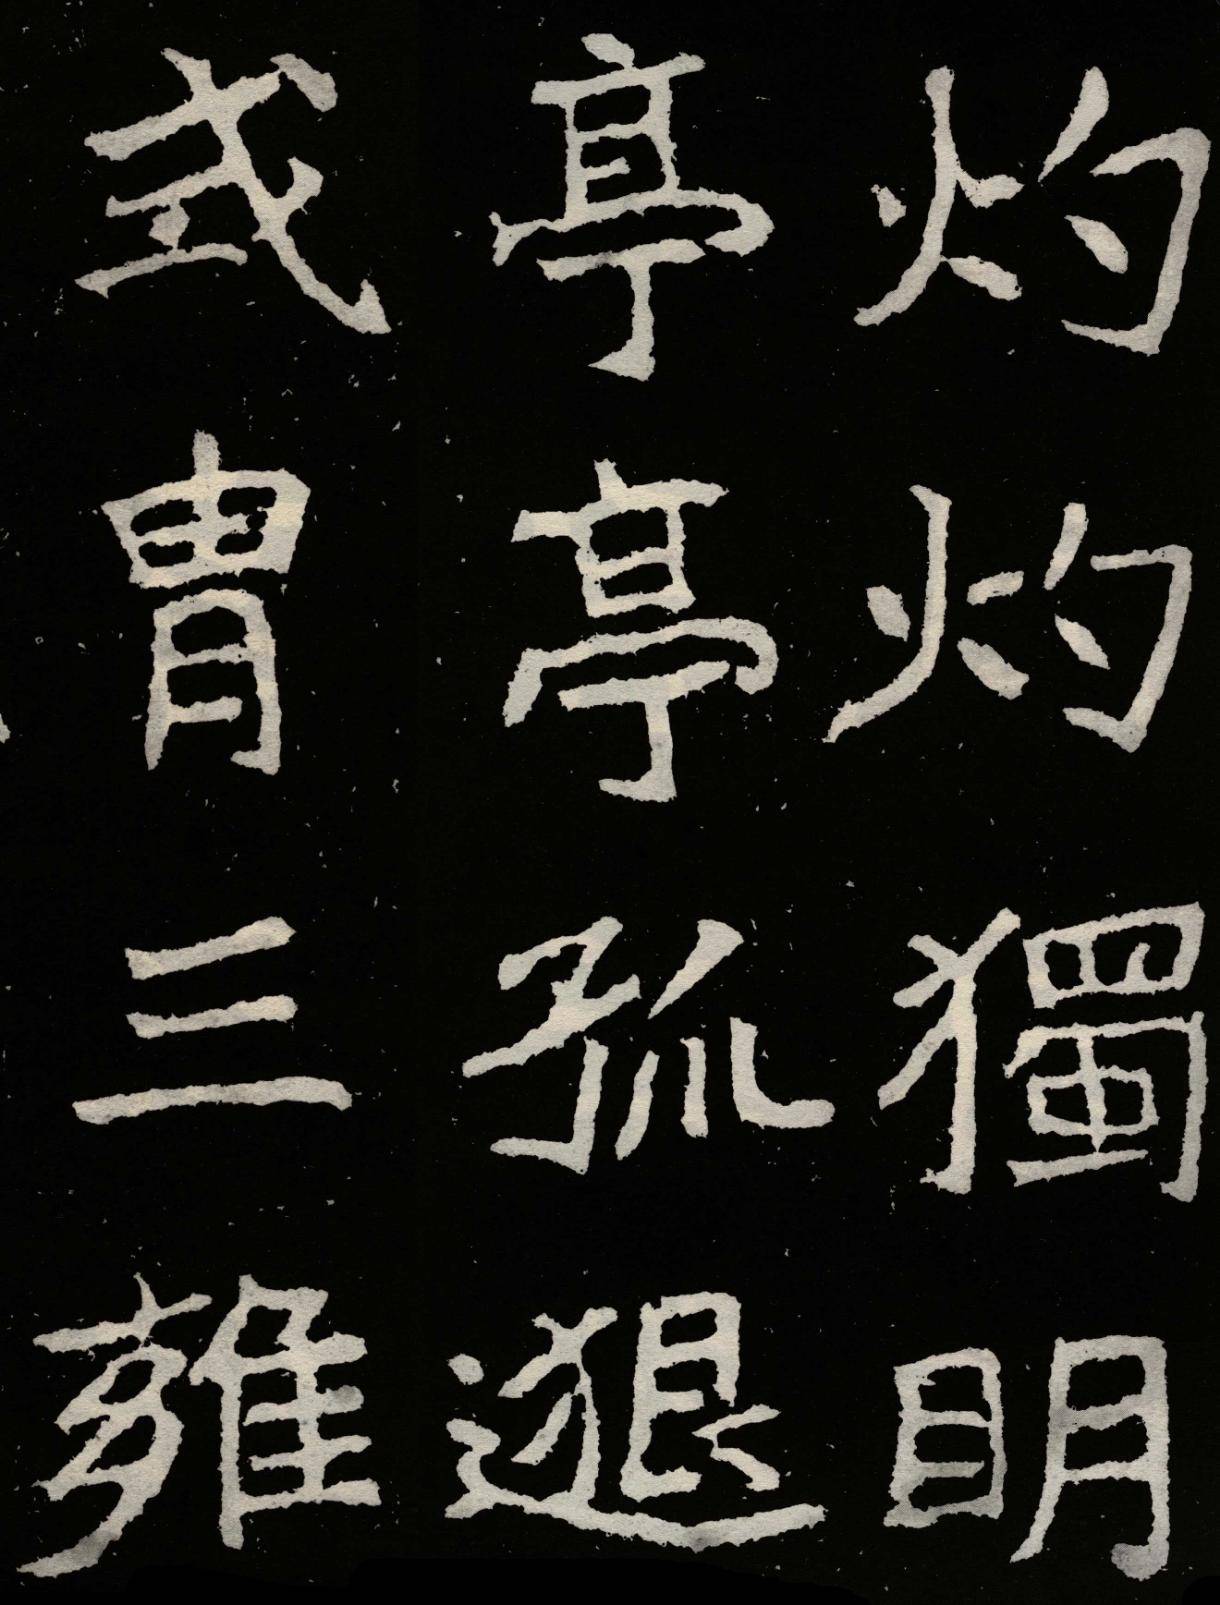 灼灼獨眀
亭亭孤邈
式胄三雍